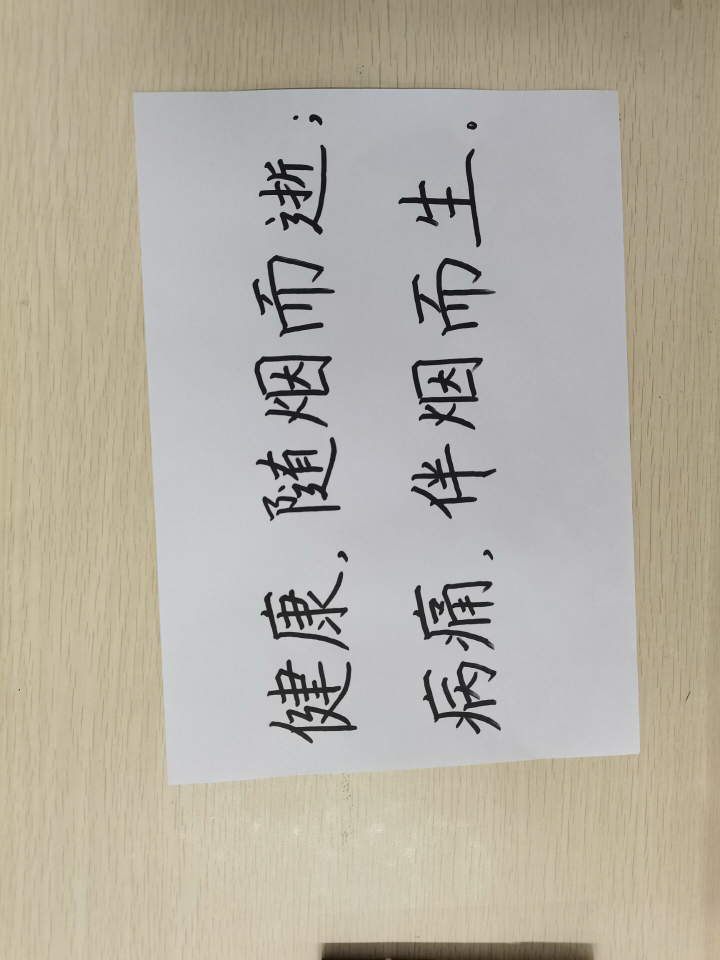 健康，随烟而逝；
病痛，伴烟而生。